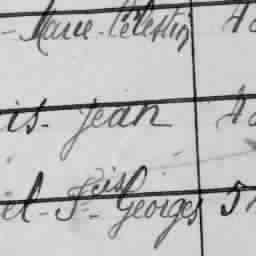 - Marie - Célestin 4
is - jean 4
el - Fçis - Georges 5